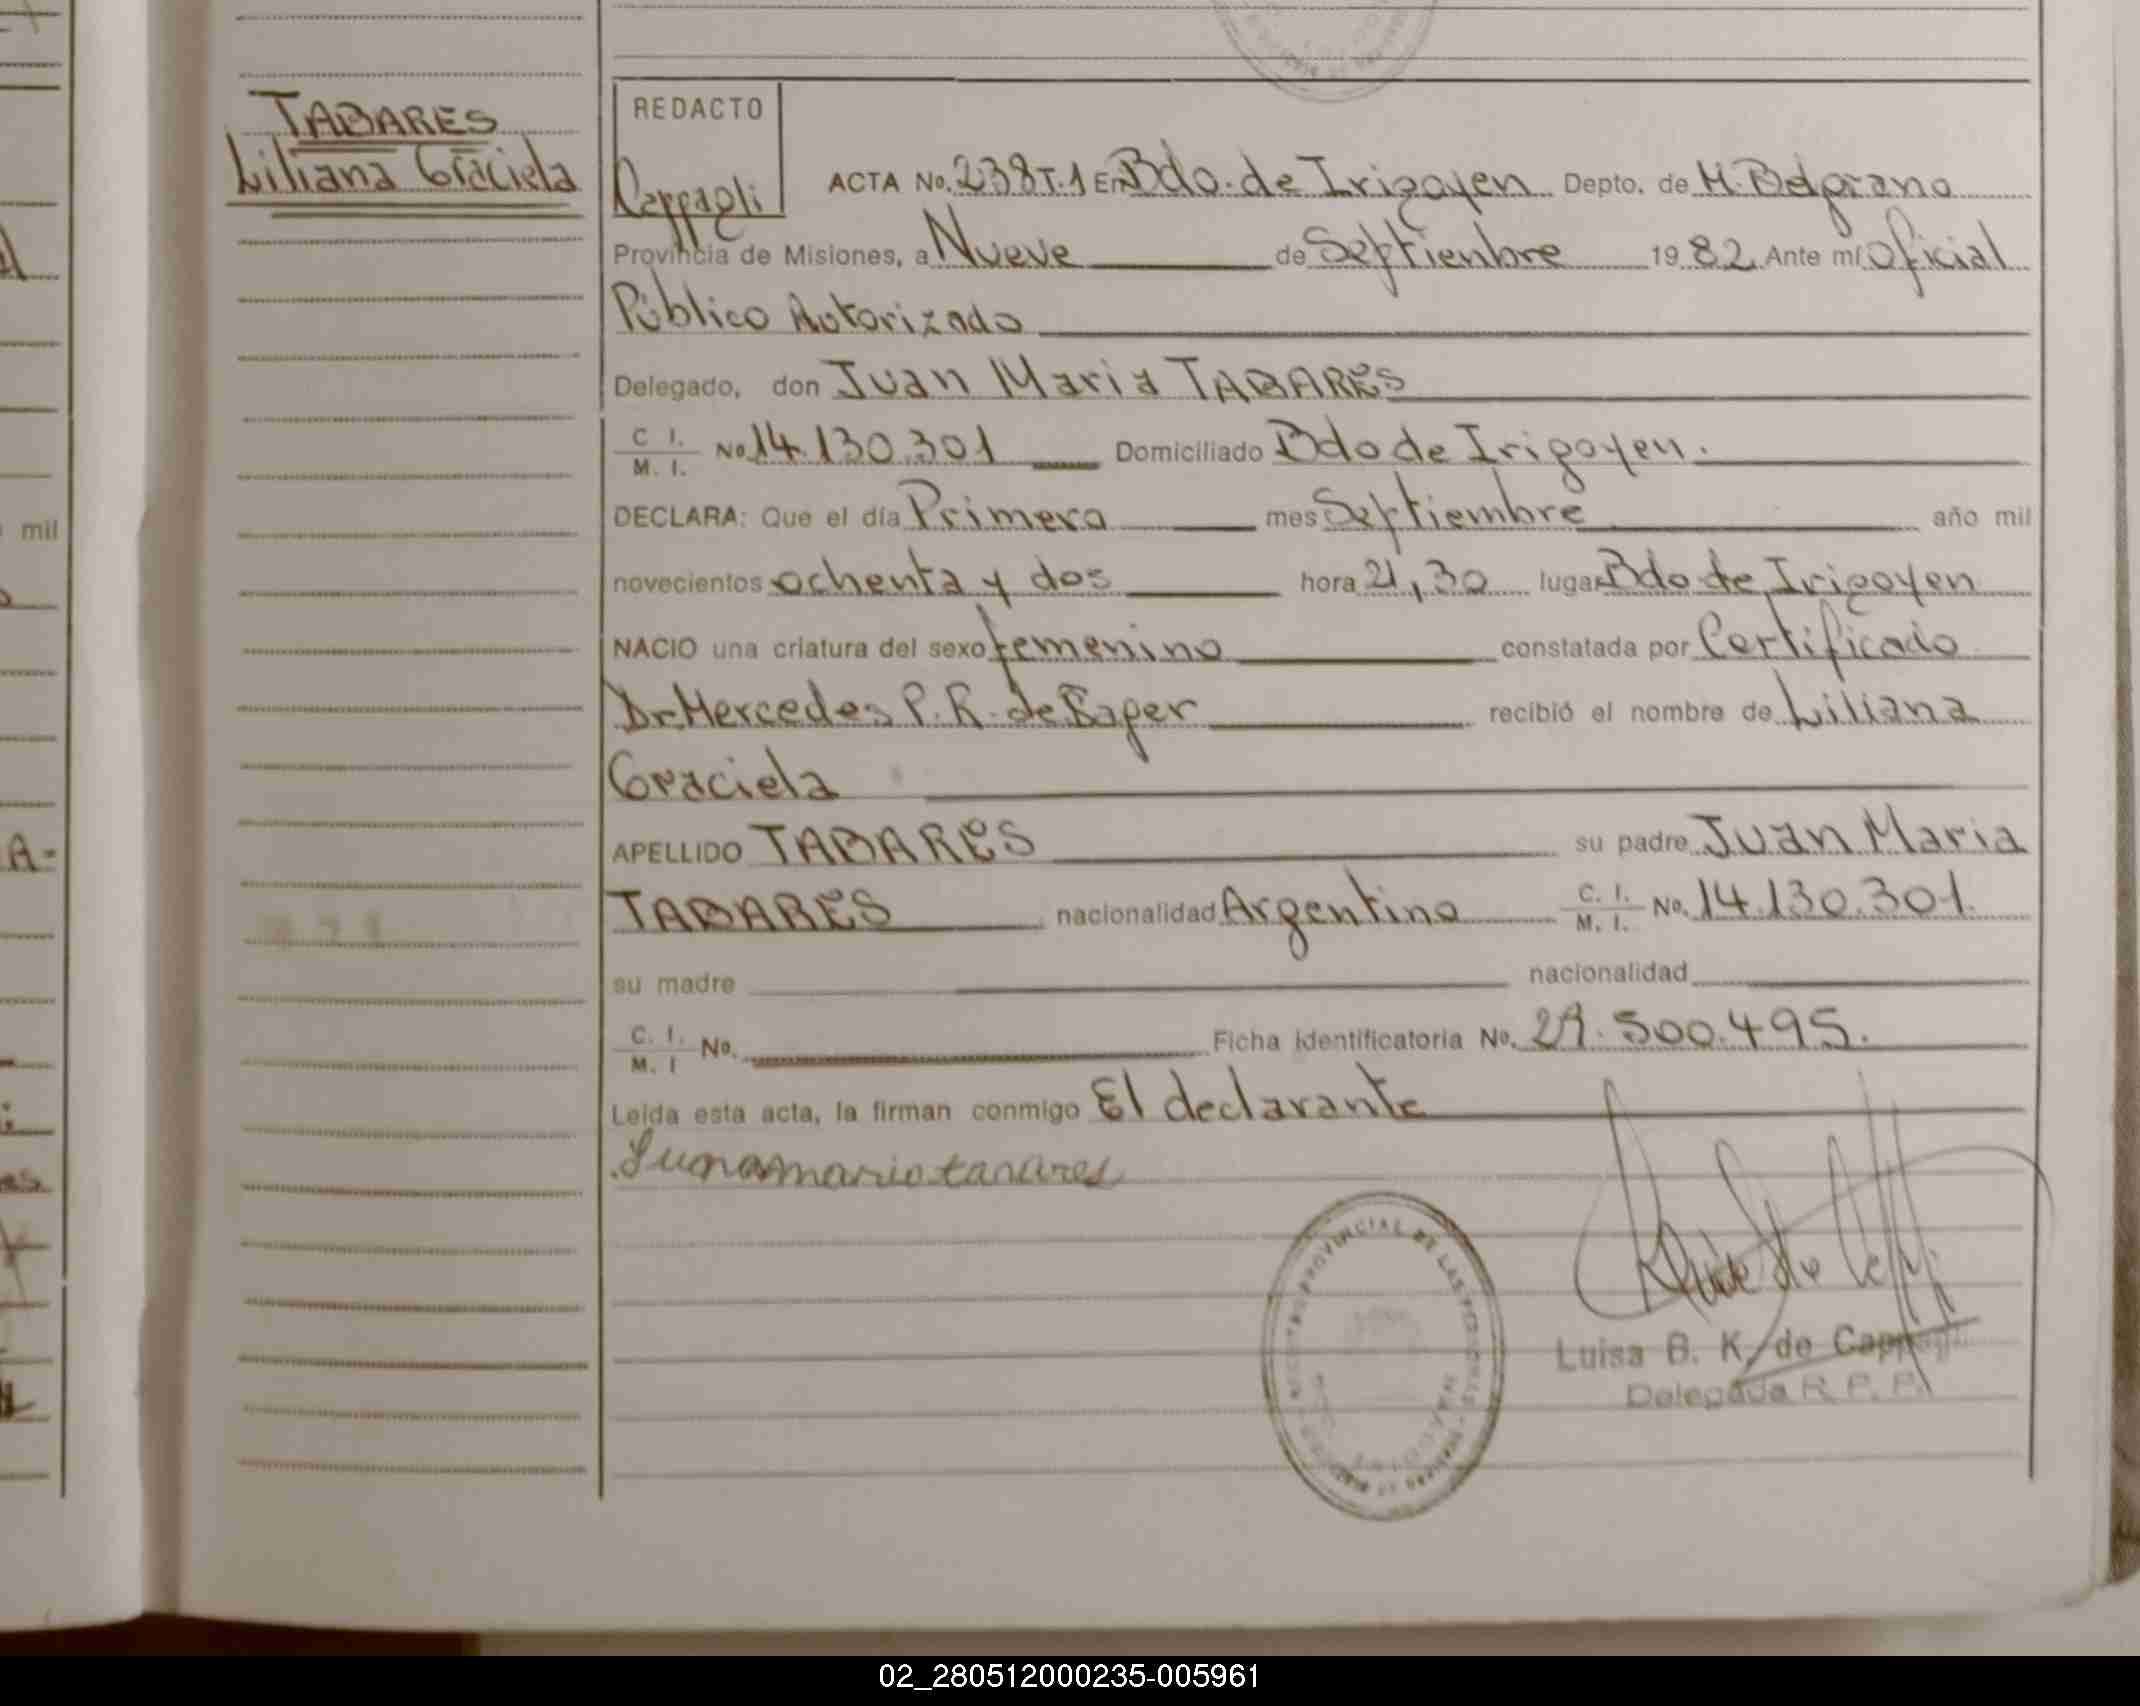 TABARES
Liliana Graciela
REDACTO
Cappagli
ACTA No. 238 T.1 En Bdo. de Irigoyen Depto. de M. Belgrano
Provincia de Misiones, a Nueve de Septiembre 19 82 Ante mí Oficial
Público Autorizado
Delegado, don Juan Maria TABARES
C I. / M. I. No. 14.130.301 Domiciliado Bdo de Irigoyen.
DECLARA: Que el día Primero mes Septiembre año mil
novecientos ochenta y dos hora 21,30 lugar Bdo de Irigoyen
NACIO una criatura del sexo femenino constatada por Certificado
Dr. Mercedes P. R. de recibió el nombre de Liliana
Graciela
APELLIDO TABARES su padre Juan Maria
TABARES nacionalidad Argentino C. I. / M. I. No. 14.130.301.
su madre nacionalidad
C. I. / M. I No. Ficha Identificatoria No. 29.500.495.
Leída esta acta, la firman conmigo El declarante
PROVINCIAL DE LAS
Luisa B. K. de Cappagli
Delegada R. P. P.
mil
A-
es
02_280512000235-005961